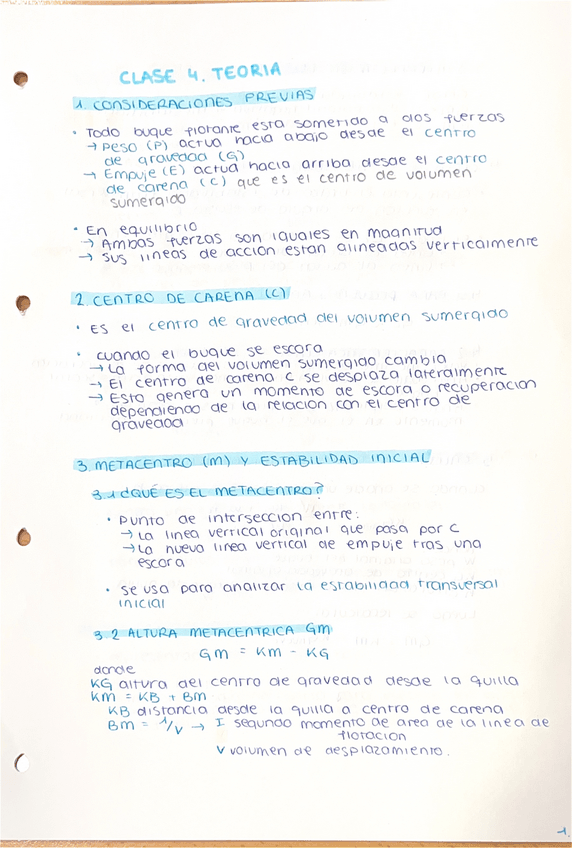 CLASE 4. TEORIA
1. CONSIDERACIONES PREVIAS
• Todo buque flotante esta sometido a dos fuerzas
→ Peso (P) actua hacia abajo desde el centro
de gravedad (G)
→ Empuje (E) actua hacia arriba desde el centro
de carena (C) que es el centro de volumen
sumergido
• En equilibrio
→ Ambas fuerzas son iguales en magnitud
→ Sus lineas de accion estan alineadas verticalmente
2. CENTRO DE CARENA (C)
• Es el centro de gravedad del volumen sumergido
• cuando el buque se escora
→ La forma del volumen sumergido cambia
→ El centro de carena C se desplaza lateralmente
→ Esto genera un momento de escora o recuperacion
dependiendo de la relacion con el centro de
gravedad
3. METACENTRO (M) Y ESTABILIDAD INICIAL
3.1 ¿QUÉ ES EL METACENTRO?
• Punto de interseccion entre:
→ La linea vertical original que pasa por C
→ La nueva linea vertical de empuje tras una
escora
• Se usa para analizar la estabilidad transversal
inicial
3.2 ALTURA METACENTRICA GM
GM = KM - KG
donde
KG altura del centro de gravedad desde la quilla
KM = KB + BM
KB distancia desde la quilla a centro de carena
BM = I/V → I segundo momento de area de la linea de
flotacion
V volumen de desplazamiento.
1.